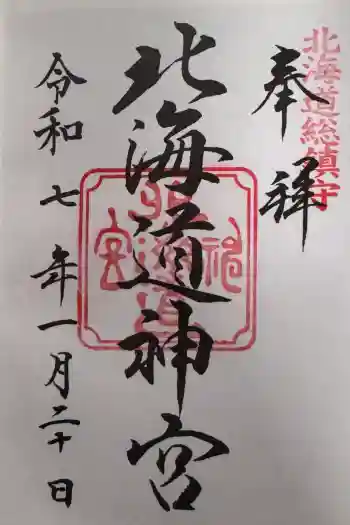 北海道総鎮守
奉拝
北海道神宮
北海道神宮
令和七年一月二十日